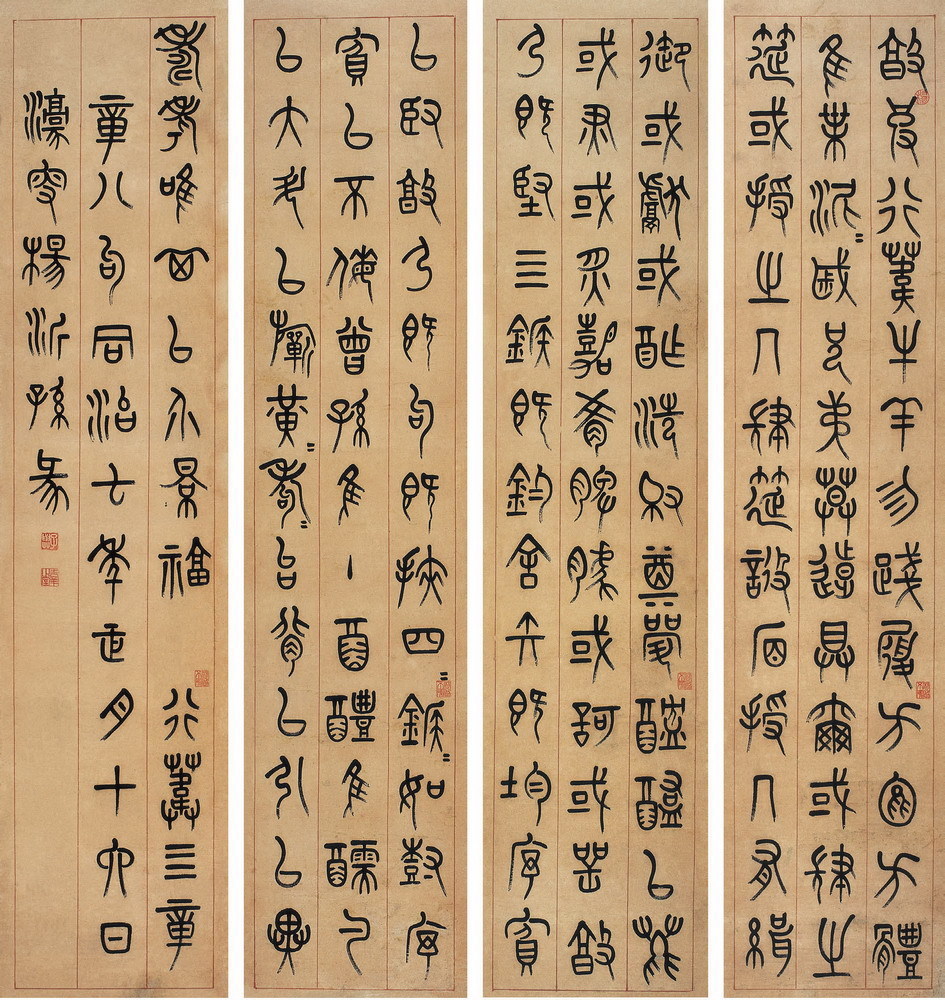 敦彼行葦牛羊勿踐履方苞方體
隹葉泥=戚兄弟莫遠具爾或肆之
筵或授之几肆筵設席授几有緝
御或獻或酢洗爵奠斝醓醢以薦
或燔或炙嘉肴脾臄或訶或咢敦
弓既堅亖鍭既鈞舍矢既均序賓
以臤敦弓既句既挾四=鍭=如尌序
賓以不侮曾孫隹丶酉醴隹醹勺
以大斗以祈黃=耇=台背以引以翼
壽考唯祺以介景福 行葦三章
章八句同治七年正月十六日
濠叟楊沂孫篆